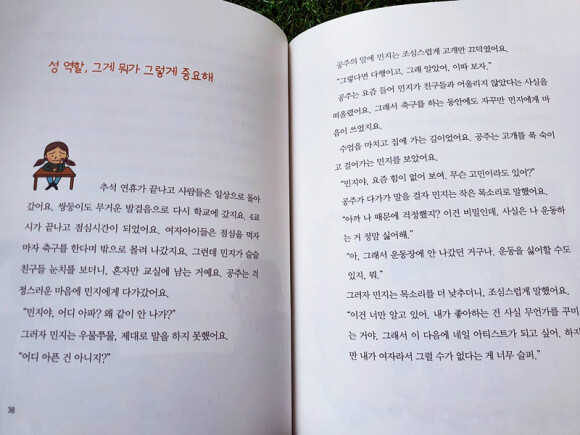 성 역할, 그게 뭐가 그렇게 중요해
추석 연휴가 끝나고 사람들은 일상으로 돌아
갔어요. 쌍둥이도 무거운 발걸음으로 다시 학교에 갔지요. 4교
시가 끝나고 점심시간이 되었어요. 여자아이들은 점심을 먹자
마자 축구를 한다며 밖으로 몰려 나갔지요. 그런데 민지가 슬슬
친구들 눈치를 보더니, 혼자만 교실에 남는 거예요. 공주는 걱
정스러운 마음에 민지에게 다가갔어요.
“민지야, 어디 아파? 왜 같이 안 나가?”
그러자 민지는 우물쭈물, 제대로 말을 하지 못했어요.
“어디 아픈 건 아니지?”
38
공주의 말에 민지는 조심스럽게 고개만 끄덕였어요.
“그렇다면 다행이고. 그래 알았어. 이따 보자.”
공주는 요즘 들어 민지가 친구들과 어울리지 않았다는 사실을
떠올렸어요. 그래서 축구를 하는 동안에도 자꾸만 민지에게 마
음이 쓰였지요.
수업을 마치고 집에 가는 길이었어요. 공주는 고개를 푹 숙이
고 걸어가는 민지를 보았어요.
“민지야, 요즘 힘이 없어 보여. 무슨 고민이라도 있어?”
공주가 다가가 말을 걸자 민지는 작은 목소리로 말했어요.
“아까 나 때문에 걱정했지? 이건 비밀인데, 사실은 나 운동하
는 거 정말 싫어해.”
“아, 그래서 운동장에 안 나갔던 거구나. 운동을 싫어할 수도
있지, 뭐.”
그러자 민지는 목소리를 더 낮추더니, 조심스럽게 말했어요.
“이건 너만 알고 있어. 내가 좋아하는 건 사실 무언가를 꾸미
는 거야. 그래서 이 다음에 네일 아티스트가 되고 싶어. 하지
만 내가 여자라서 그럴 수가 없다는 게 너무 슬퍼.”